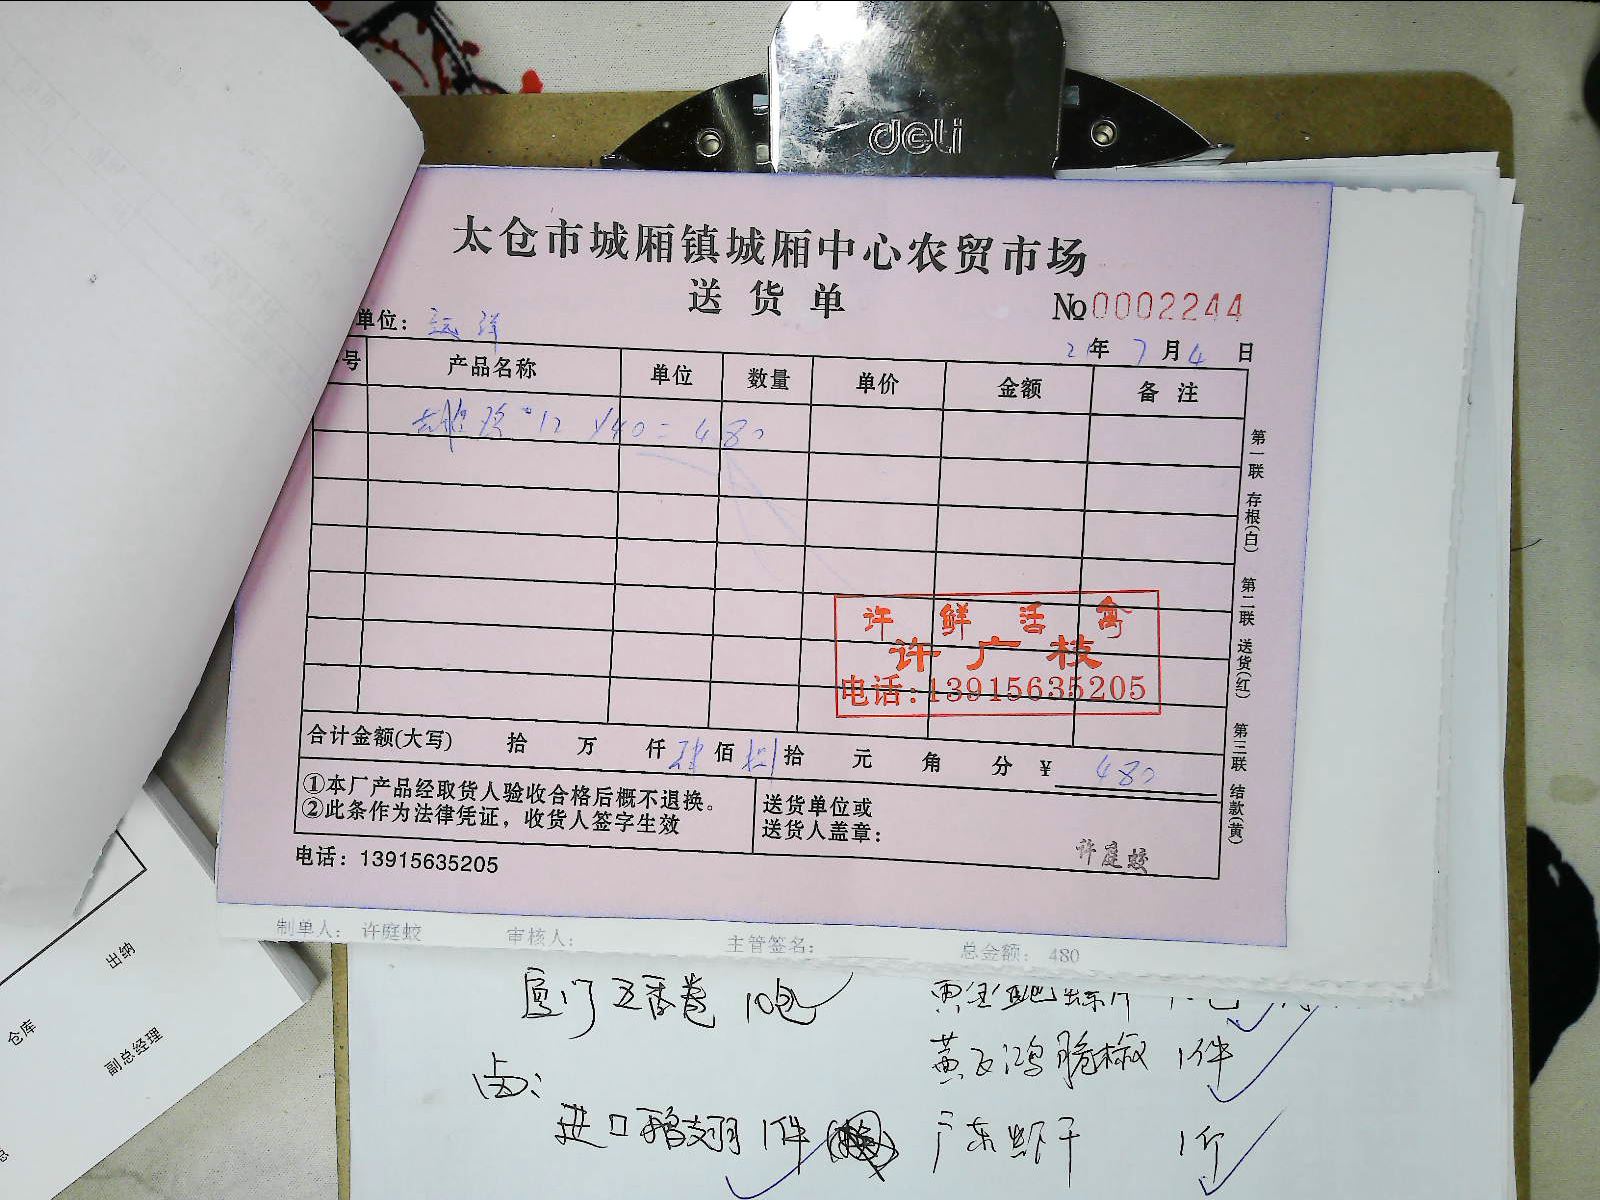 deli
太仓市城厢镇城厢中心农贸市场
送货单
№0002244
单位：远洋
21年7月4日
号 产品名称 单位 数量 单价 金额 备注
12 ×40=480
第一联 存根(白) 第二联 送货(红) 第三联 结款(黄)
许鲜活禽
许广枝
电话:13915635205
合计金额(大写) 拾 万 仟肆佰捌拾 元 角 分 ¥ 480
①本厂产品经取货人验收合格后概不退换。
②此条作为法律凭证，收货人签字生效
送货单位或
送货人盖章：
许庭蛟
电话：13915635205
制单人： 许庭蛟 审核人： 主管签名： 总金额： 480
厦门五香卷 10包
卤：
黄飞鸿脆椒 1件
进口鸭翅 1件
广东虾干 1斤
出纳
仓库
副总经理